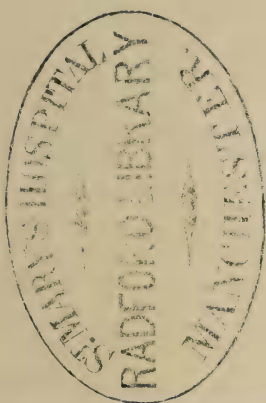 ST. MARY'S HOSPITAL
RADFORD LIBRARY
MANCHESTER